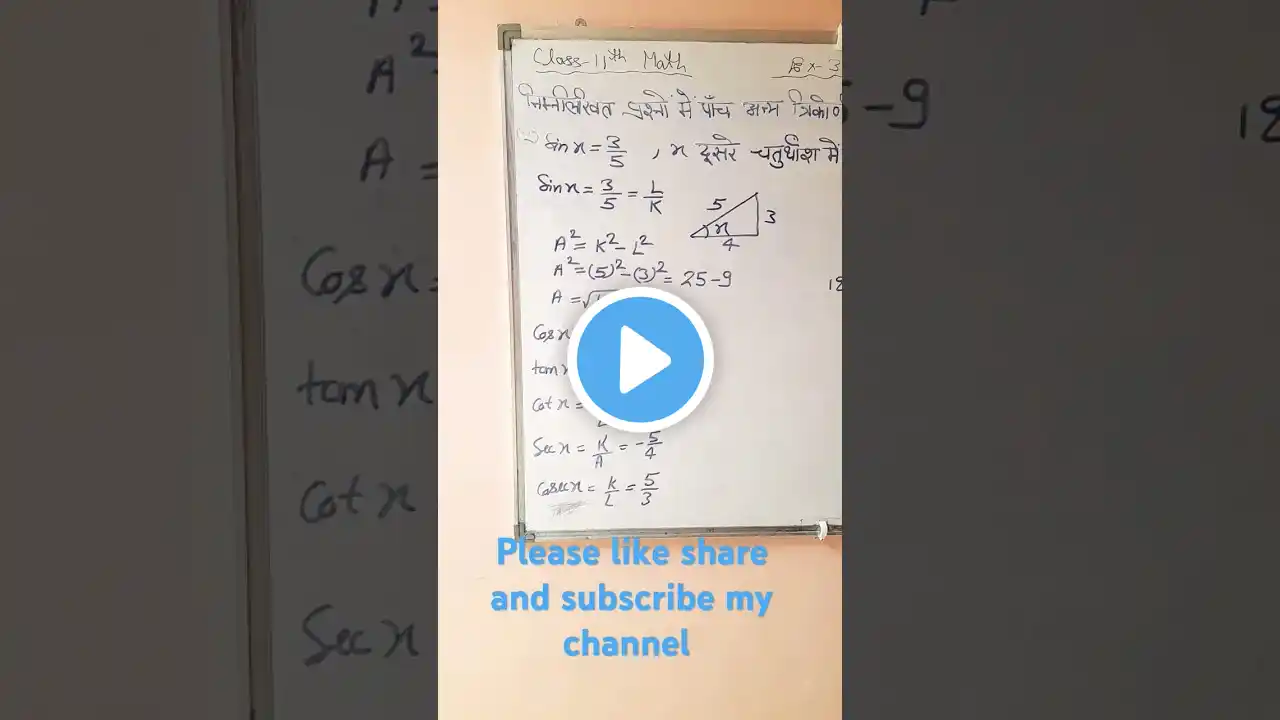 Class-11th Math
Ex-3
निम्नलिखित प्रश्नों में पाँच अन्य त्रिकोण
Sin x = 3/5 , x दूसरे चतुर्थांश में
Sin x = 3/5 = L/K
5
3
x
4
A² = K² - L²
A² = (5)² - (3)² = 25 - 9
18
A = √
Cos x
tan x
Cot x =
Sec x = K/A = -5/4
Cosec x = K/L = 5/3
Please like share
and subscribe my
channel
A²
A =
Cos x
tan x
Cot x
Sec x
- 9
18